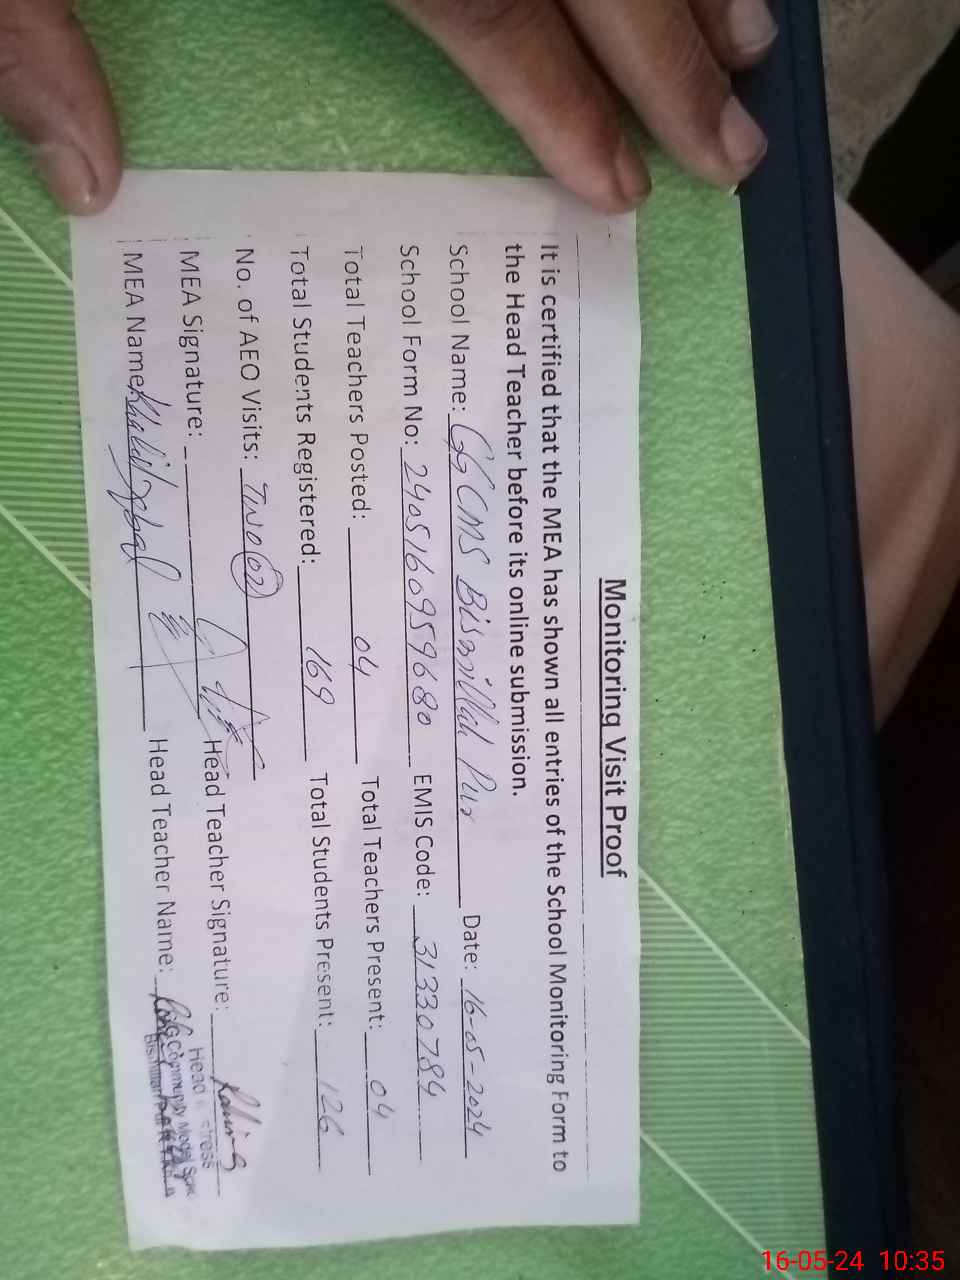 Monitoring Visit Proof
It is certified that the MEA has shown all entries of the School Monitoring Form to
the Head Teacher before its online submission.
School Name: GGCMS Bismillah Pur Date: 16-05-2024
School Form No: 2405160959680 EMIS Code: 31330784
Total Teachers Posted: 04 Total Teachers Present: 04
Total Students Registered: 169 Total Students Present: 126
No. of AEO Visits: Two (02)
MEA Signature: Head Teacher Signature:
MEA Name: Khalid Iqbal Head Teacher Name:
Head
Community Model
Bismillah
16-05-24 10:35